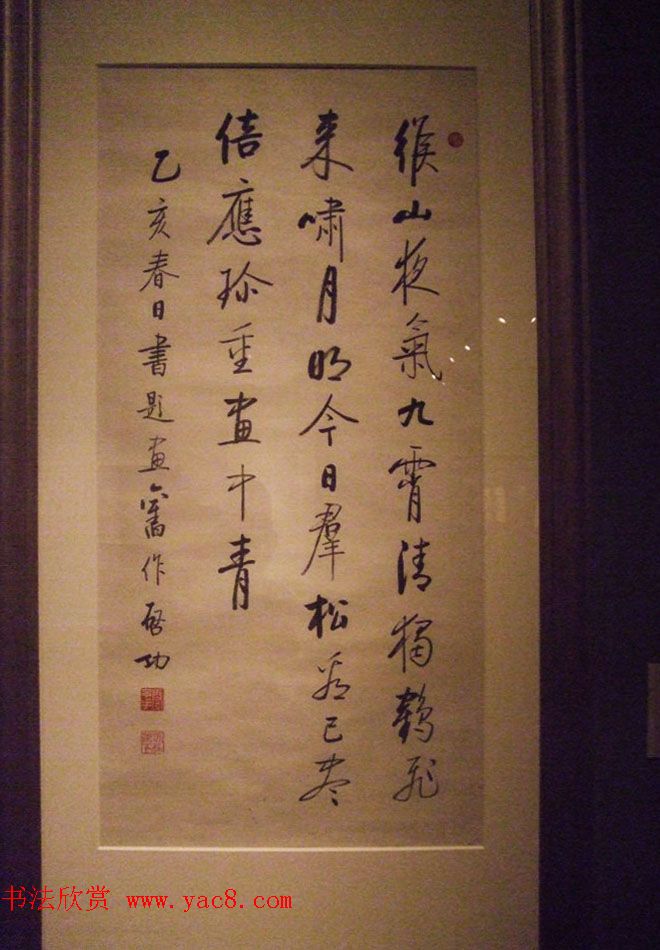 緱山夜氣九霄清獨鶴飛
来嘯月明今日羣松看已盡
倍應珍重畫中青
乙亥春日書題畫舊作 啓功
书法欣赏 www.yac8.com